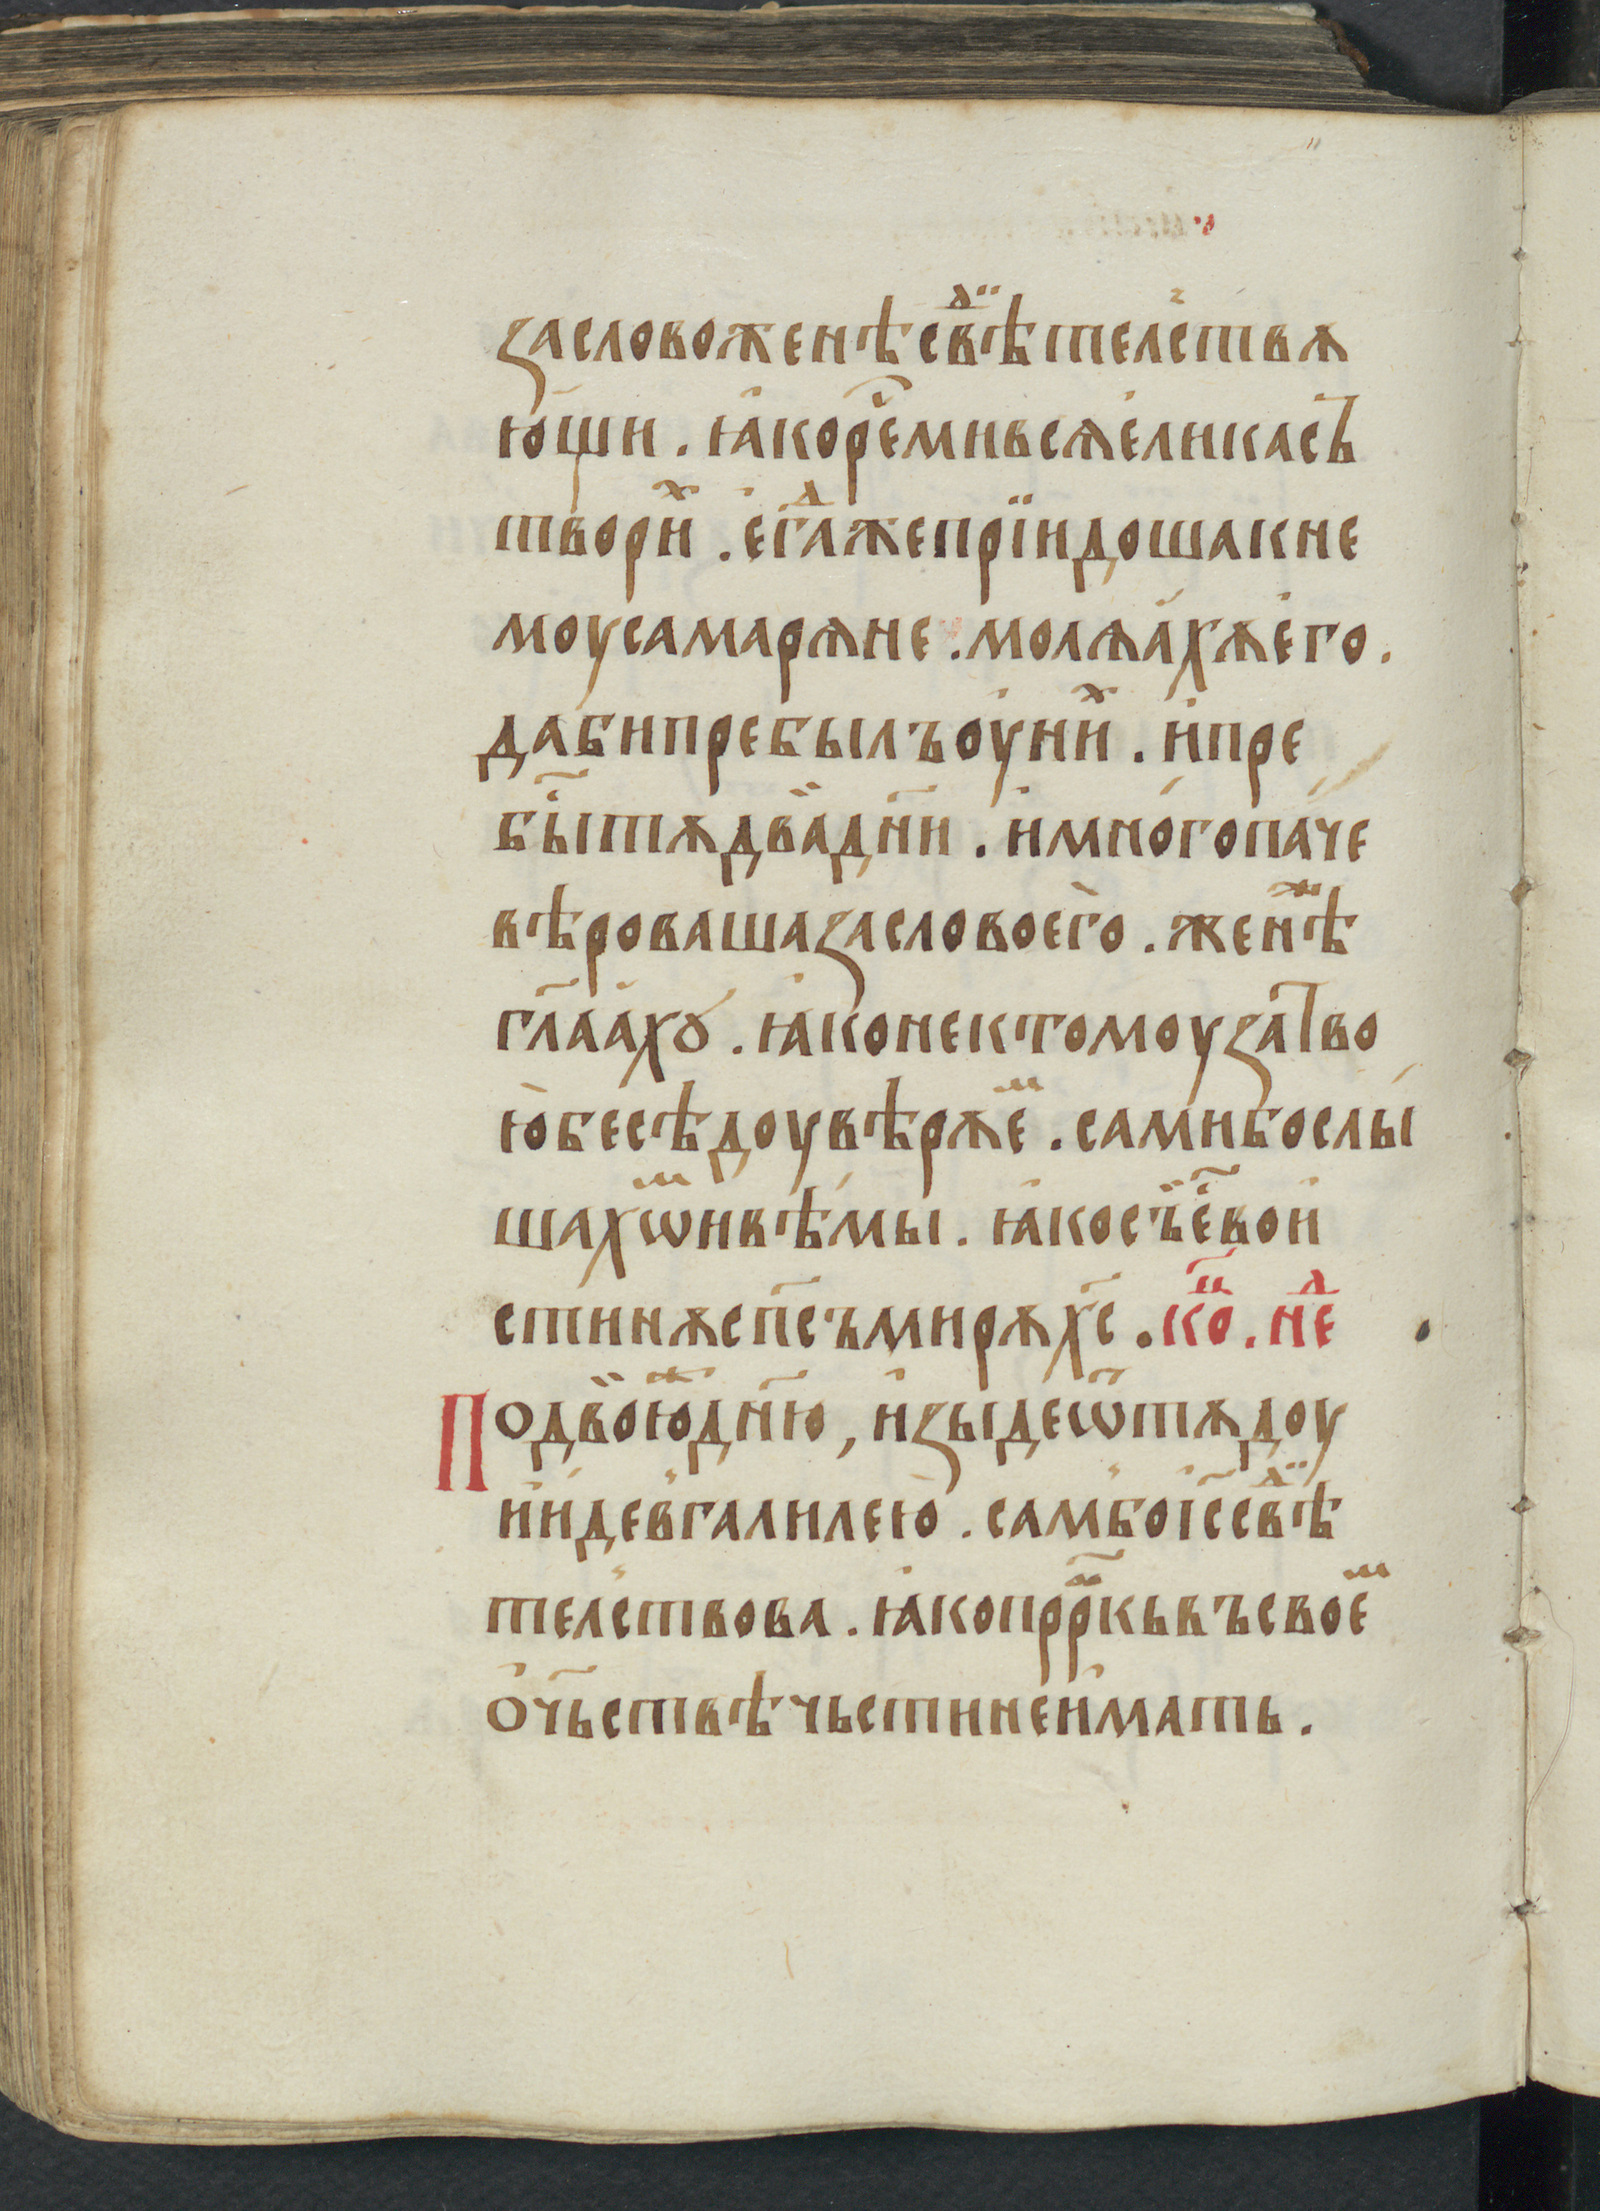 за слово женѣ свⷣѣтелствѫ
ющи . ꙗко рече ми всѧ елика съ
твориⷯ . егⷣа же прїидошѧ к не
моу самарѧне . молѧахѫ его .
да би пребылъ оу ниⷯ . и пре
бы́ тѫ два дн҃и . и мно́го па́че
вѣроваша за слово его . женⷤѣ
гл҃аахꙋ . ꙗко не к томоу за тво
ю бесѣдоу вѣрѫеⷨ . сами бо слы́
шахѡⷨ и вѣмы . ꙗко съ е҃ въ и
стинѫ сп҃съ мирѫ х҃с . коⷰ҇ . неⷣ
По двоюⷤ дн҃ю , изыде ѿтѫдоу
и иде в галилею . самъ бо і҃с свⷣѣ
телствова . ꙗко прⷪ҇ркь въ своеⷨ
о҃чьствѣ чьсти не имать .